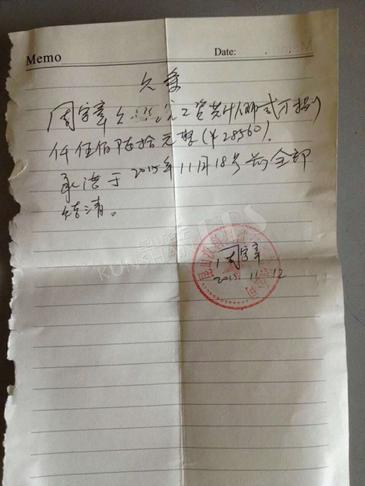 Memo
Date:
欠条
周宇章欠 工资共计人币贰万捌
仟伍佰陆拾元整(¥28560).
承诺于2015年11月18号前全部
结清。
周宇章
2015.11.12